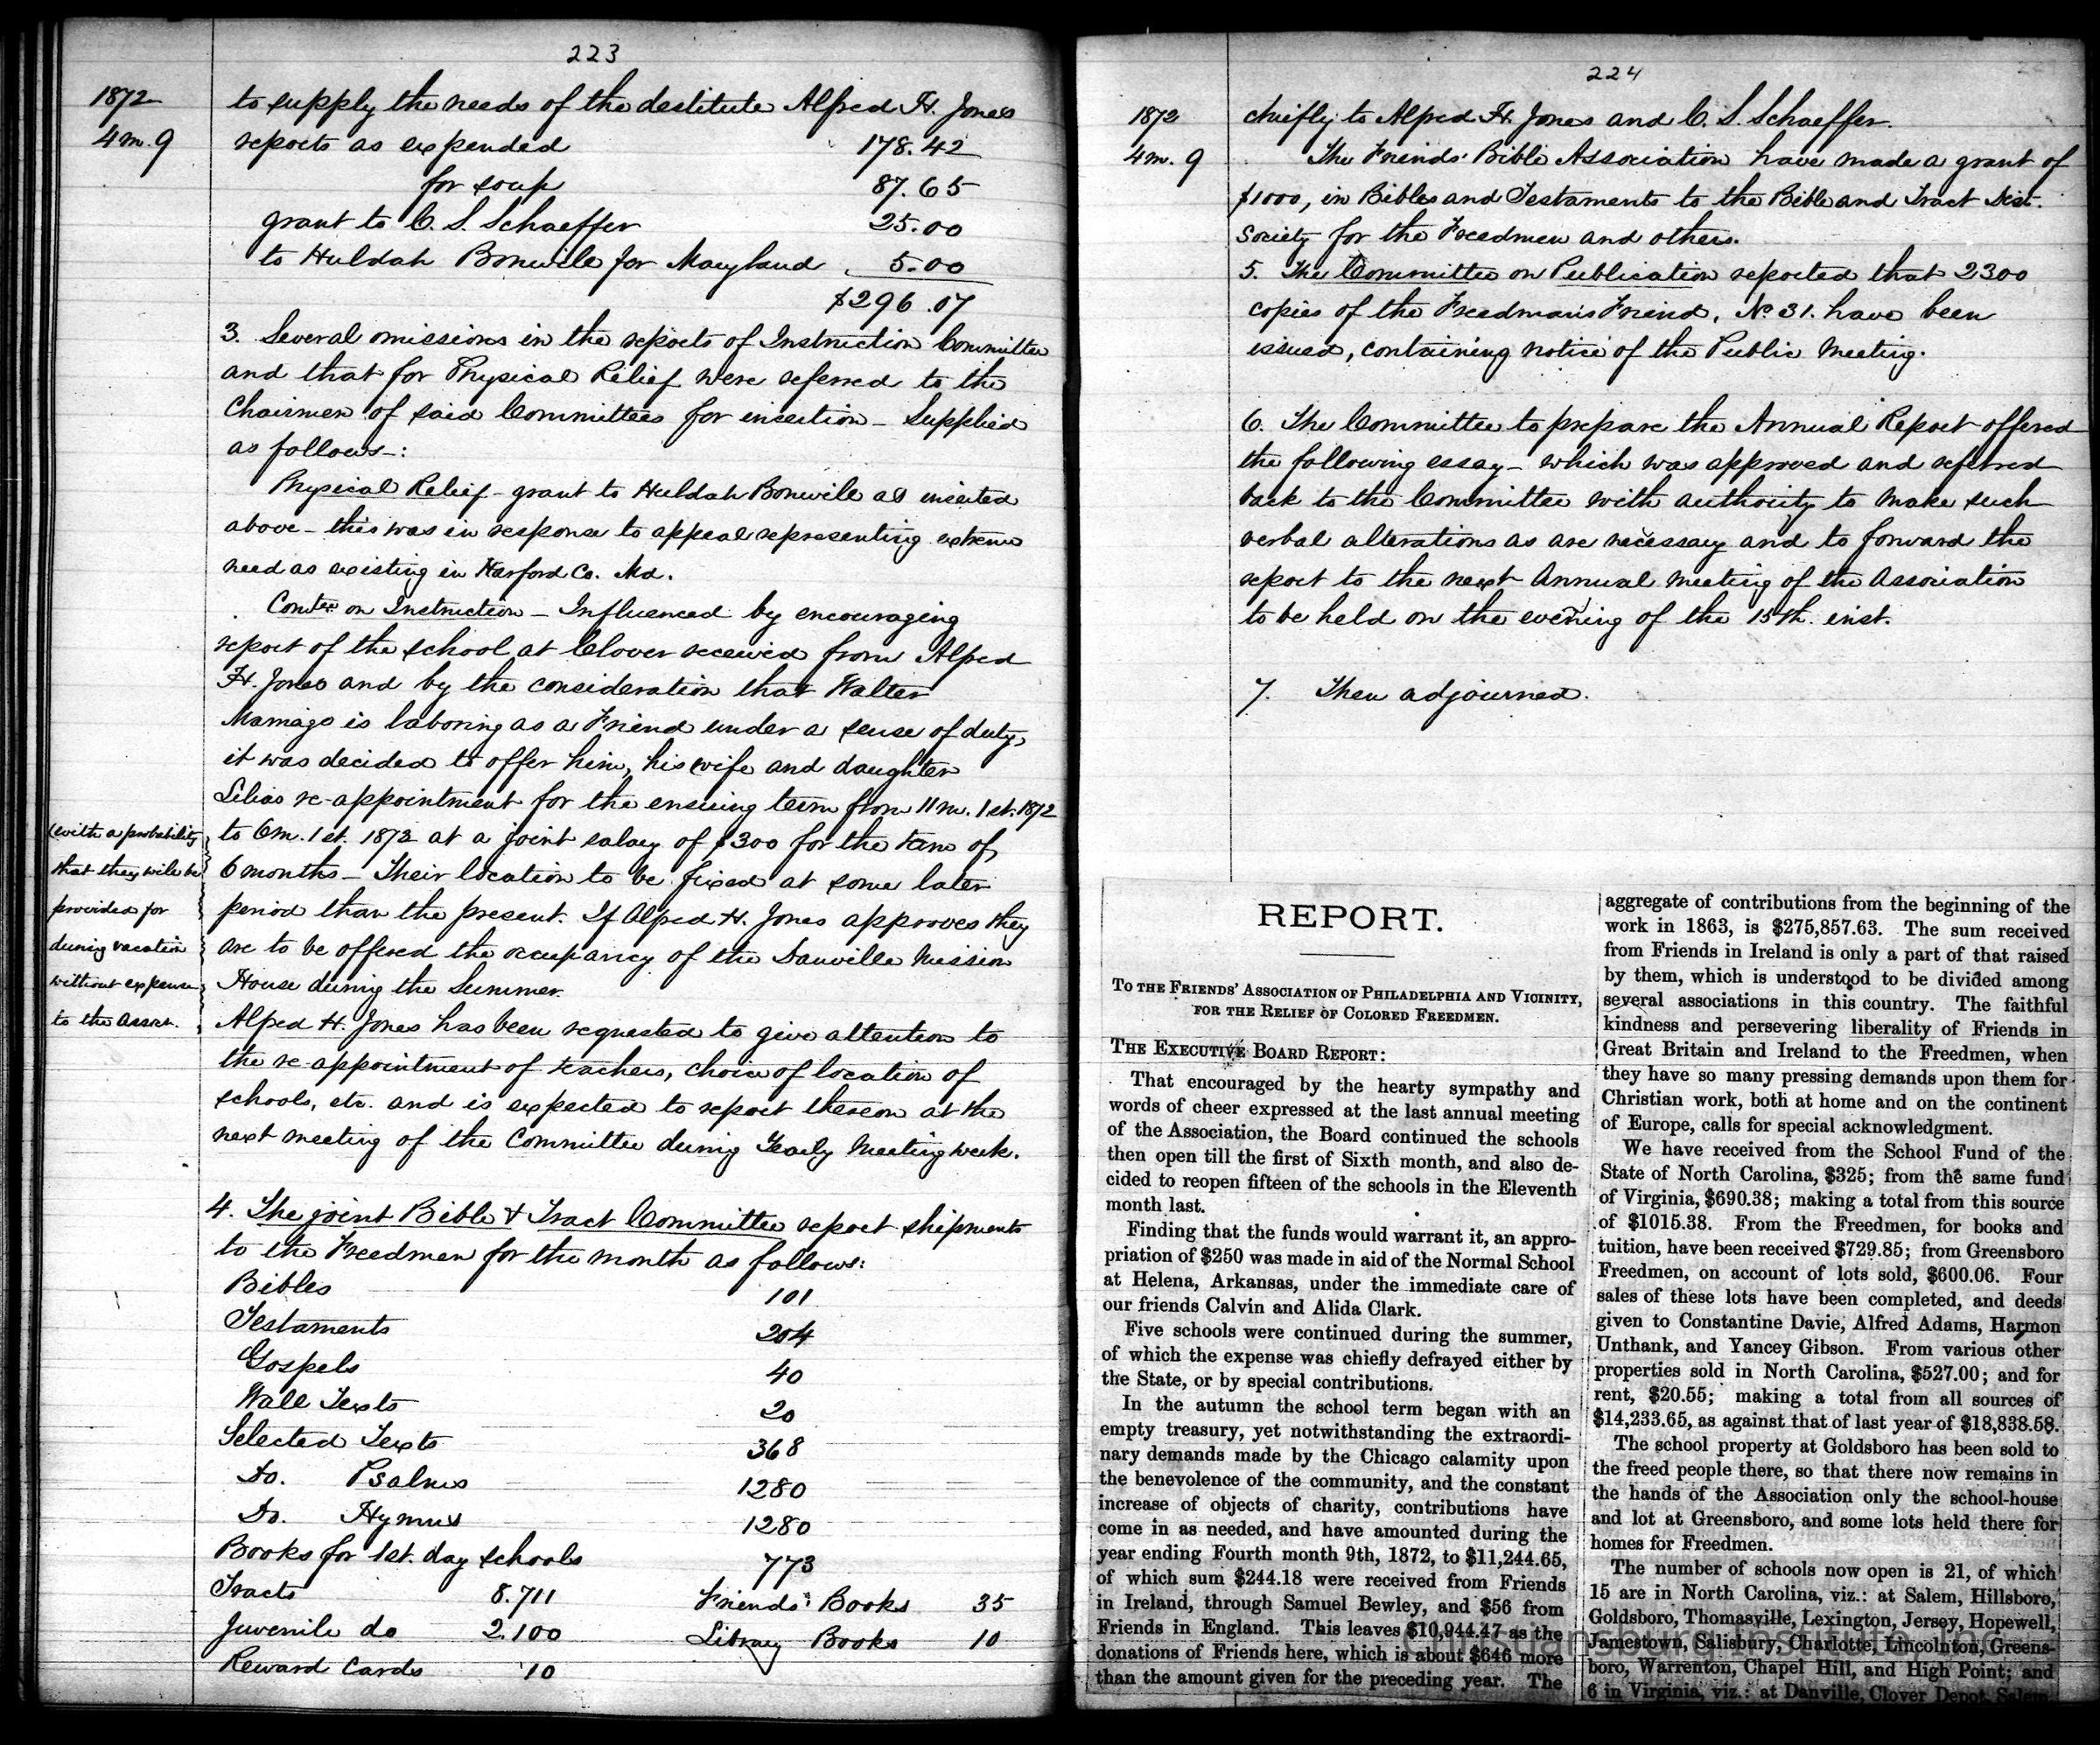 223
1872
4m. 9
to supply the needs of the destitute Alfred H. Jones
reports as expended 178.42
for soup 87.65
grant to C. S. Schaeffer 25.00
to Huldah Bonwill for Maryland 5.00
$296.07
3. Several omissions in the reports of Instruction Committee
and that for Physical Relief were referred to the
Chairmen of said Committees for insertion – Supplied
as follows –:
Physical Relief – grant to Huldah Bonwill as inserted
above – this was in response to appeal representing extreme
need as existing in Harford Co. Md.
Comtee on Instruction – Influenced by encouraging
report of the school at Clover received from Alfred
H. Jones and by the consideration that Walter
is laboring as a Friend under a sense of duty,
it was decided to offer him, his wife and daughter
Lilias re-appointment for the ensuing term from 11m. 1st. 1872
to 6m. 1st. 1873 at a joint salary of $300 for the term of
6 months – Their location to be fixed at some later
period than the present. If Alfred H. Jones approves they
are to be offered the occupancy of the Danville Mission
House during the Summer.
(with a probability
that they will be
provided for
during vacation
without expense
to the Assocn.
Alfred H. Jones has been requested to give attention to
the re-appointment of teachers, choice of location of
schools, etc. and is expected to report thereon at the
next meeting of the Committee during Yearly Meeting week.
4. The joint Bible & Tract Committee report shipments
to the Freedmen for the month as follows:
Bibles 101
Testaments 204
Gospels 40
Wall Texts 20
Selected Texts 368
Do. Psalms 1280
Do. Hymns 1280
Books for 1st. day schools 773
Tracts 8.711 Friends' Books 35
Juvenile do 2.100 Library Books 10
Reward Cards 10
224
1872
4m. 9
chiefly to Alfred H. Jones and C. S. Schaeffer.
The Friends' Bible Association have made a grant of
$1000, in Bibles and Testaments to the Bible and Tract Dist.
Society for the Freedmen and others.
5. The Committee on Publication reported that 2300
copies of the Freedman's Friend, No. 31. have been
issued, containing notice of the Public Meeting.
6. The Committee to prepare the Annual Report offered
the following essay – which was approved and referred
back to the Committee with authority to make such
verbal alterations as are necessary and to forward the
report to the next Annual Meeting of the Association
to be held on the evening of the 15th. inst.
7. Then adjourned.
REPORT.
TO THE FRIENDS' ASSOCIATION OF PHILADELPHIA AND VICINITY,
FOR THE RELIEF OF COLORED FREEDMEN.
THE EXECUTIVE BOARD REPORT:
That encouraged by the hearty sympathy and
words of cheer expressed at the last annual meeting
of the Association, the Board continued the schools
then open till the first of Sixth month, and also de-
cided to reopen fifteen of the schools in the Eleventh
month last.
Finding that the funds would warrant it, an appro-
priation of $250 was made in aid of the Normal School
at Helena, Arkansas, under the immediate care of
our friends Calvin and Alida Clark.
Five schools were continued during the summer,
of which the expense was chiefly defrayed either by
the State, or by special contributions.
In the autumn the school term began with an
empty treasury, yet notwithstanding the extraordi-
nary demands made by the Chicago calamity upon
the benevolence of the community, and the constant
increase of objects of charity, contributions have
come in as needed, and have amounted during the
year ending Fourth month 9th, 1872, to $11,244.65,
of which sum $244.18 were received from Friends
in Ireland, through Samuel Bewley, and $56 from
Friends in England. This leaves $10,944.47 as the
donations of Friends here, which is about $646 more
than the amount given for the preceding year. The
aggregate of contributions from the beginning of the
work in 1863, is $275,857.63. The sum received
from Friends in Ireland is only a part of that raised
by them, which is understood to be divided among
several associations in this country. The faithful
kindness and persevering liberality of Friends in
Great Britain and Ireland to the Freedmen, when
they have so many pressing demands upon them for
Christian work, both at home and on the continent
of Europe, calls for special acknowledgment.
We have received from the School Fund of the
State of North Carolina, $325; from the same fund
of Virginia, $690.38; making a total from this source
of $1015.38. From the Freedmen, for books and
tuition, have been received $729.85; from Greensboro
Freedmen, on account of lots sold, $600.06. Four
sales of these lots have been completed, and deeds
given to Constantine Davie, Alfred Adams, Harmon
Unthank, and Yancey Gibson. From various other
properties sold in North Carolina, $527.00; and for
rent, $20.55; making a total from all sources of
$14,233.65, as against that of last year of $18,838.58.
The school property at Goldsboro has been sold to
the freed people there, so that there now remains in
the hands of the Association only the school-house
and lot at Greensboro, and some lots held there for
homes for Freedmen.
The number of schools now open is 21, of which
15 are in North Carolina, viz.: at Salem, Hillsboro,
Goldsboro, Thomasville, Lexington, Jersey, Hopewell,
Jamestown, Salisbury, Charlotte, Lincolnton, Greens-
boro, Warrenton, Chapel Hill, and High Point; and
6 in Virginia, viz.: at Danville, Clover Depot, Salem,
Christiansburg Institute, Inc.